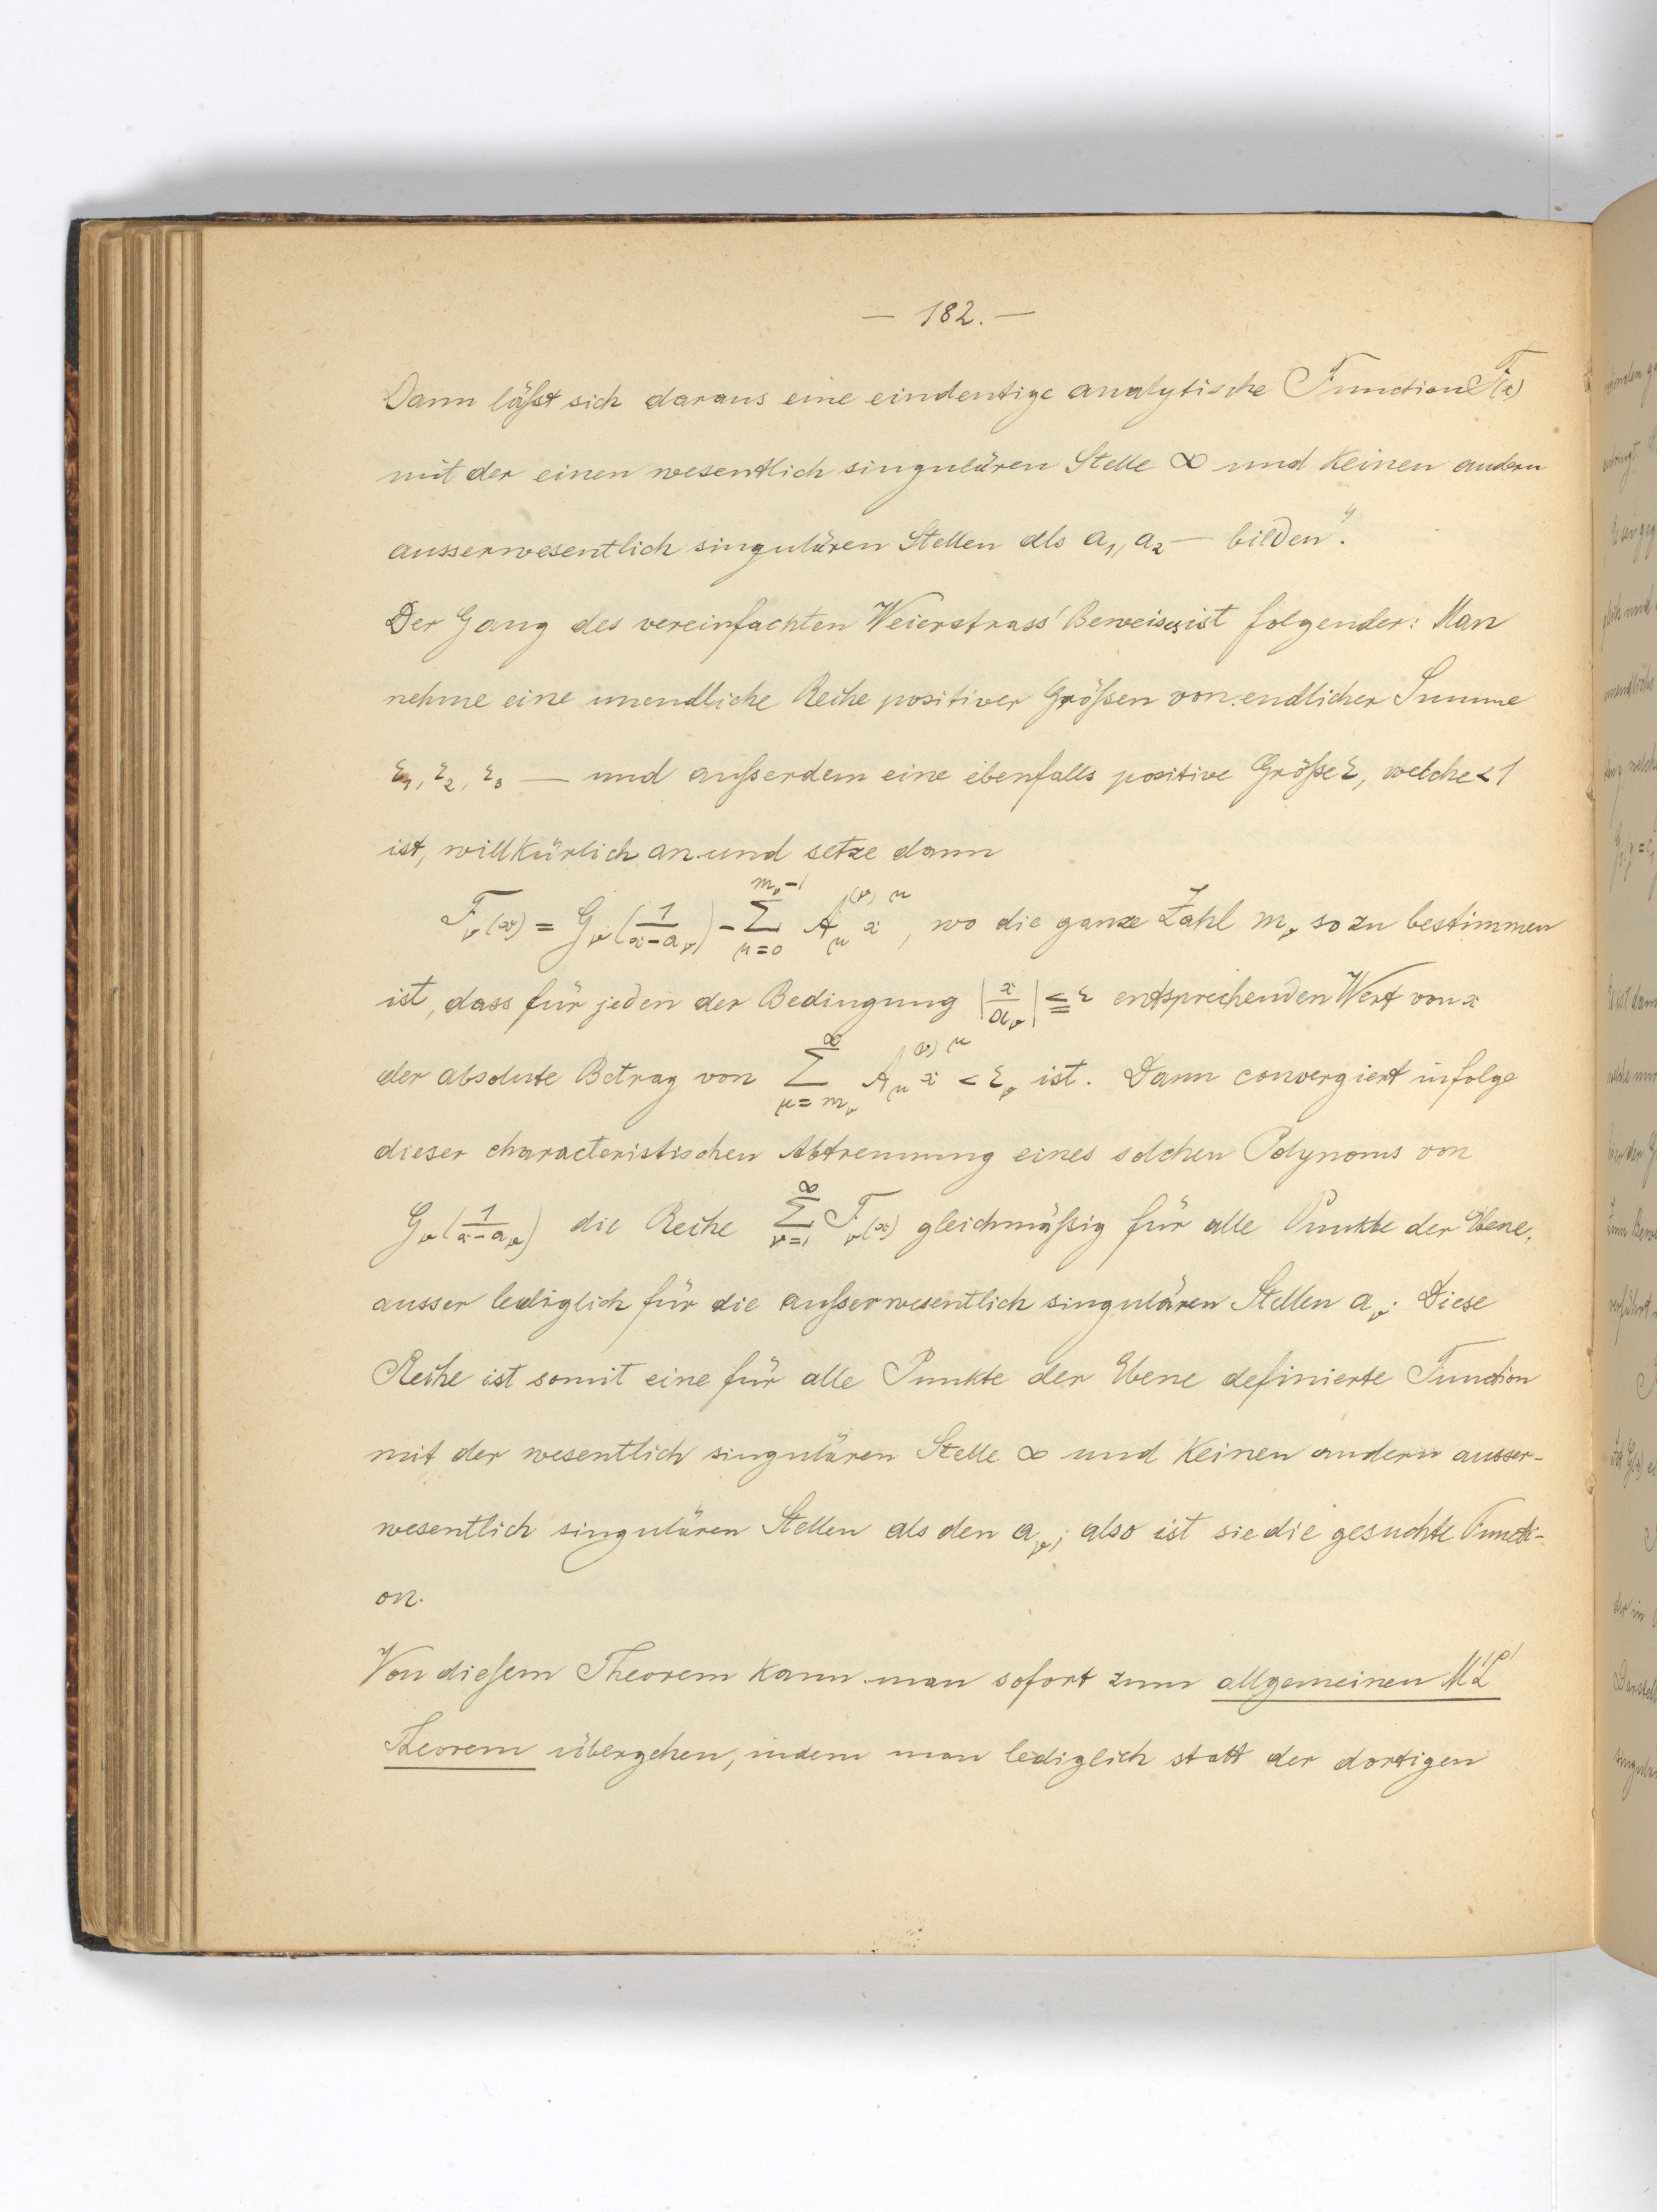 — 182. —
Dann läßt sich daraus eine eindeutige analytische Function F(x)
mit der einen wesentlich singulären Stelle ∞ und keinen andern
ausserwesentlich singulären Stellen als a₁, a₂ — bilden".
Der Gang des vereinfachten Weierstrass' Beweises ist folgender: Man
nehme eine unendliche Reihe positiver Größen von endlicher Summe
ε₁, ε₂, ε₃ — und außerdem eine ebenfalls positive Größe ε, welche < 1
ist, willkürlich an und setze dann
F_ν(x) = G_ν(1/(x-a_ν)) - Σ_{μ=0}^{m_ν-1} A_μ^{(ν)} x^μ, wo die ganze Zahl m_ν so zu bestimmen
ist, dass für jeden der Bedingung |x/a_ν| ≦ ε entsprechenden Wert von x
der absolute Betrag von Σ_{μ=m_ν}^{∞} A_μ^{(ν)} x^μ < ε_ν ist. Dann convergiert infolge
dieser characteristischen Abtrennung eines solchen Polynoms von
G_ν(1/(x-a_ν)) die Reihe Σ_{ν=1}^{∞} F_ν(x) gleichmäßig für alle Punkte der Ebene,
ausser lediglich für die außerwesentlich singulären Stellen a_ν. Diese
Reihe ist somit eine für alle Punkte der Ebene definierte Function
mit der wesentlich singulären Stelle ∞ und keinen andern ausser-
wesentlich singulären Stellen als den a_ν; also ist sie die gesuchte Functi-
on.
Von diesem Theorem kann man sofort zum allgemeinen M'L'
Theorem übergehen, indem man lediglich statt der dortigen